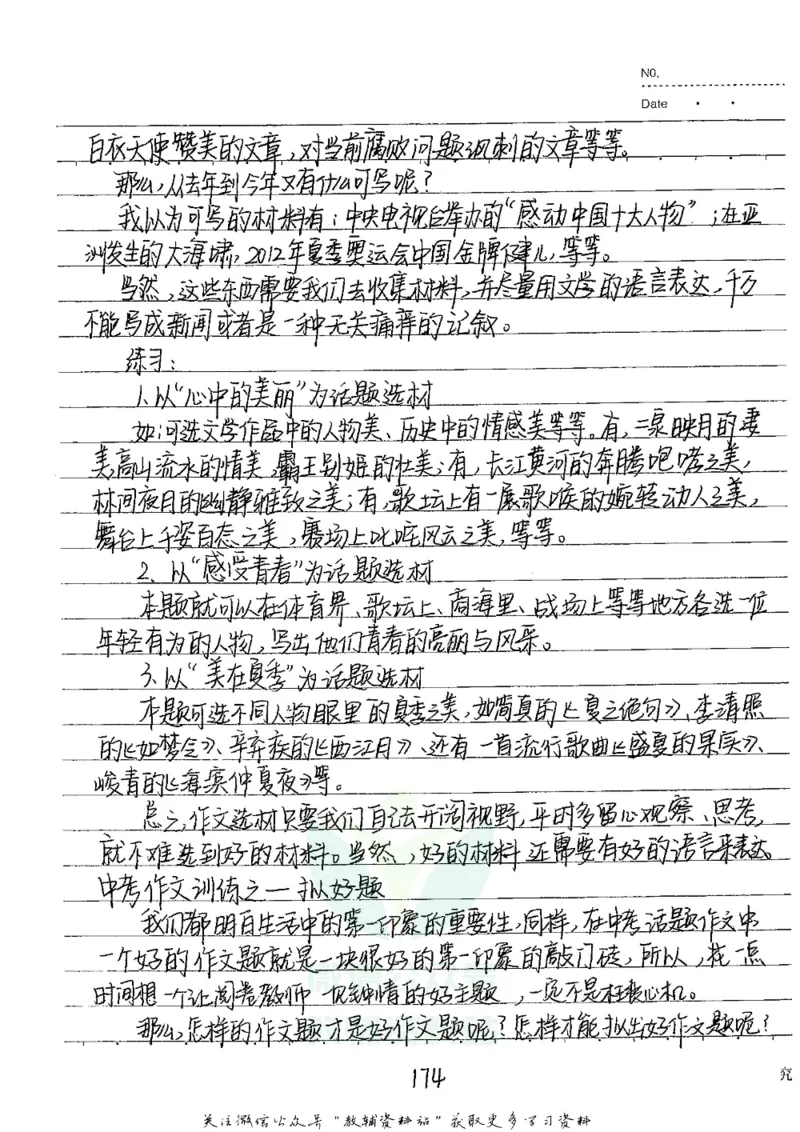 NO.
Date
白衣天使赞美的文章,对当前腐败问题讽刺的文章等等。
那么,从去年到今年又有什么可写呢?
我以为可写的材料有:中央电视台举办的“感动中国十大人物”;在亚
洲发生的大海啸,2012年夏季奥运会中国金牌健儿,等等。
当然,这些东西需要我们去收集材料,并尽量用文学的语言表达,千万
不能写成新闻或者是一种无关痛痒的记叙。
练习:
1.以“心中的美丽”为话题选材
如:可选文学作品中的人物美、历史中的情感美等等。有,二泉映月的凄
美,高山流水的情美,霸王别姬的壮美;有,长江黄河的奔腾咆哮之美,
林间夜月的幽静雅致之美;有,歌坛上有一展歌喉的婉转动人之美,
舞台上千姿百态之美,赛场上叱咤风云之美,等等。
2.以“感受青春”为话题选材
本题就可以在体育界、歌坛上、商海里、战场上等等地方各选一位
年轻有为的人物,写出他们青春的亮丽与风采。
3.以“美在夏季”为话题选材
本题可选不同人物眼里的夏季之美,如简真的《夏之绝句》、李清照
的《如梦令》、辛弃疾的《西江月》、还有一首流行歌曲《盛夏的果实》、
峻青的《海滨仲夏夜》等。
总之,作文选材只要我们自己去开阔视野,平时多留心观察、思考,
就不难选到好的材料。当然,好的材料还需要有好的语言来表达。
中考作文训练之一拟好题
我们都明白生活中的第一印象的重要性,同样,在中考话题作文中
一个好的作文题就是一块很好的第一印象的敲门砖,所以,花一点
时间想一个让阅卷教师一见钟情的好主题,一定不是枉费心机。
那么,怎样的作文题才是好作文题呢?怎样才能拟出好作文题呢?
174
究
关注微信公众号“教辅资料站”获取更多学习资料